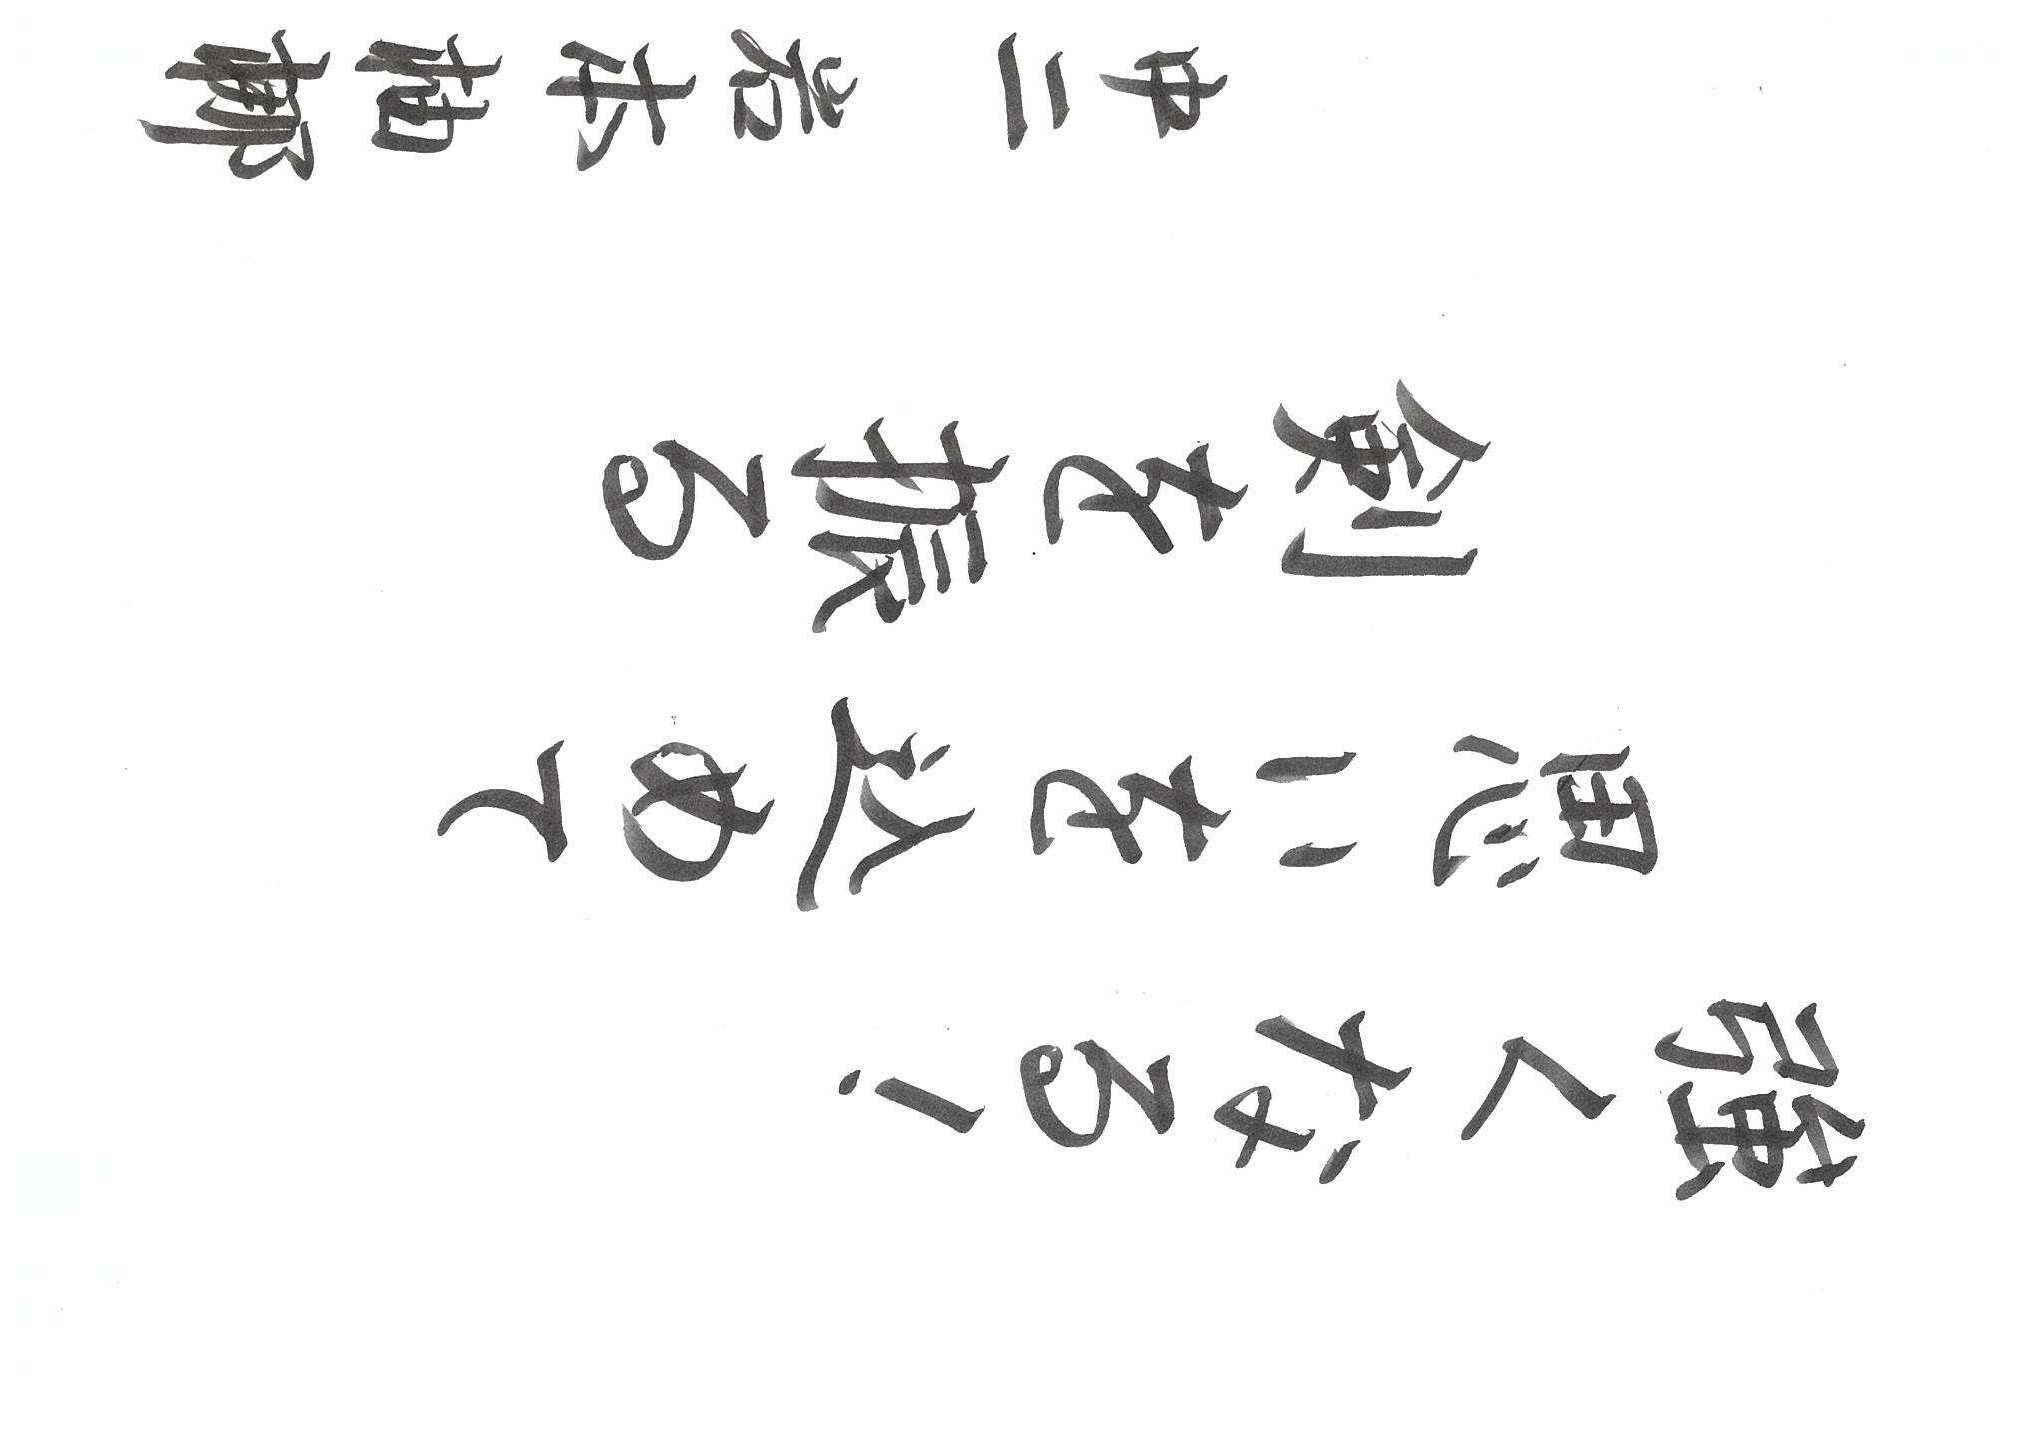 強くなる!
思いを込めて
剣を振る
中二 岩本柚梛